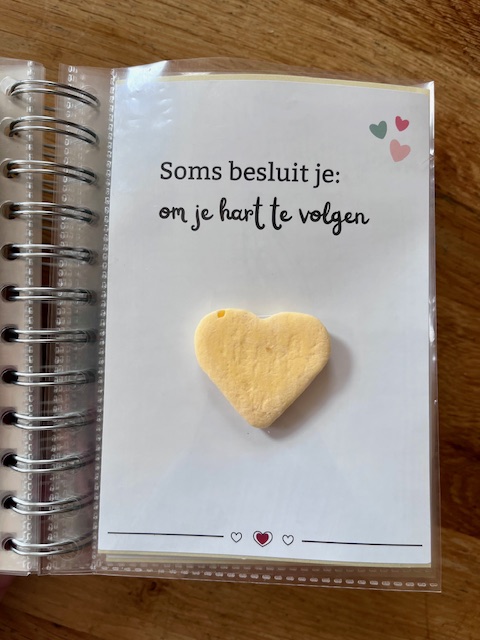 Soms besluit je:
om je hart te volgen